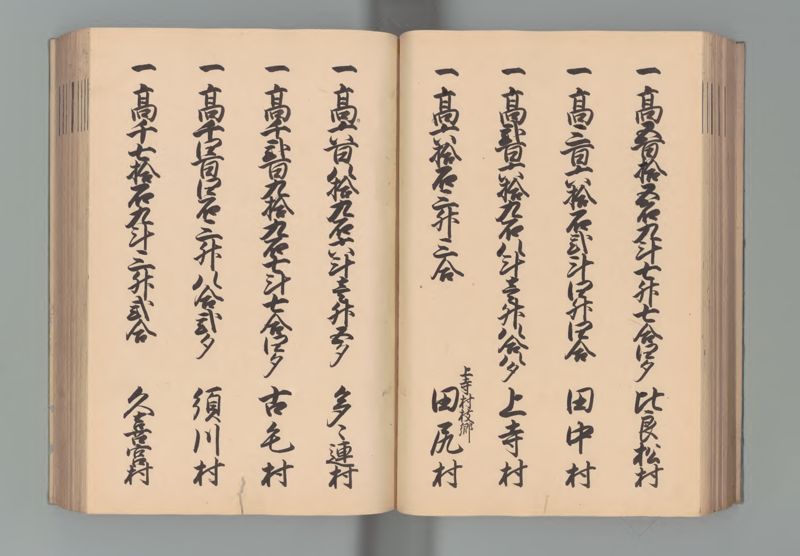 一 高五百拾五石九斗七升七合四夕 比良松村
一 高三百六拾石弐斗四升四合 田中村
一 高弐百六拾九石八斗壱升八合八夕 上寺村
一 高六拾石三升三合 上寺村枝郷 田尻村
一 高六百八拾九石六斗壱升五夕 多々連村
一 高千弐百九拾九石七斗七合四夕 古毛村
一 高千四百四石三升八合弐夕 須川村
一 高千七拾石九斗三升弐合 久喜宮村